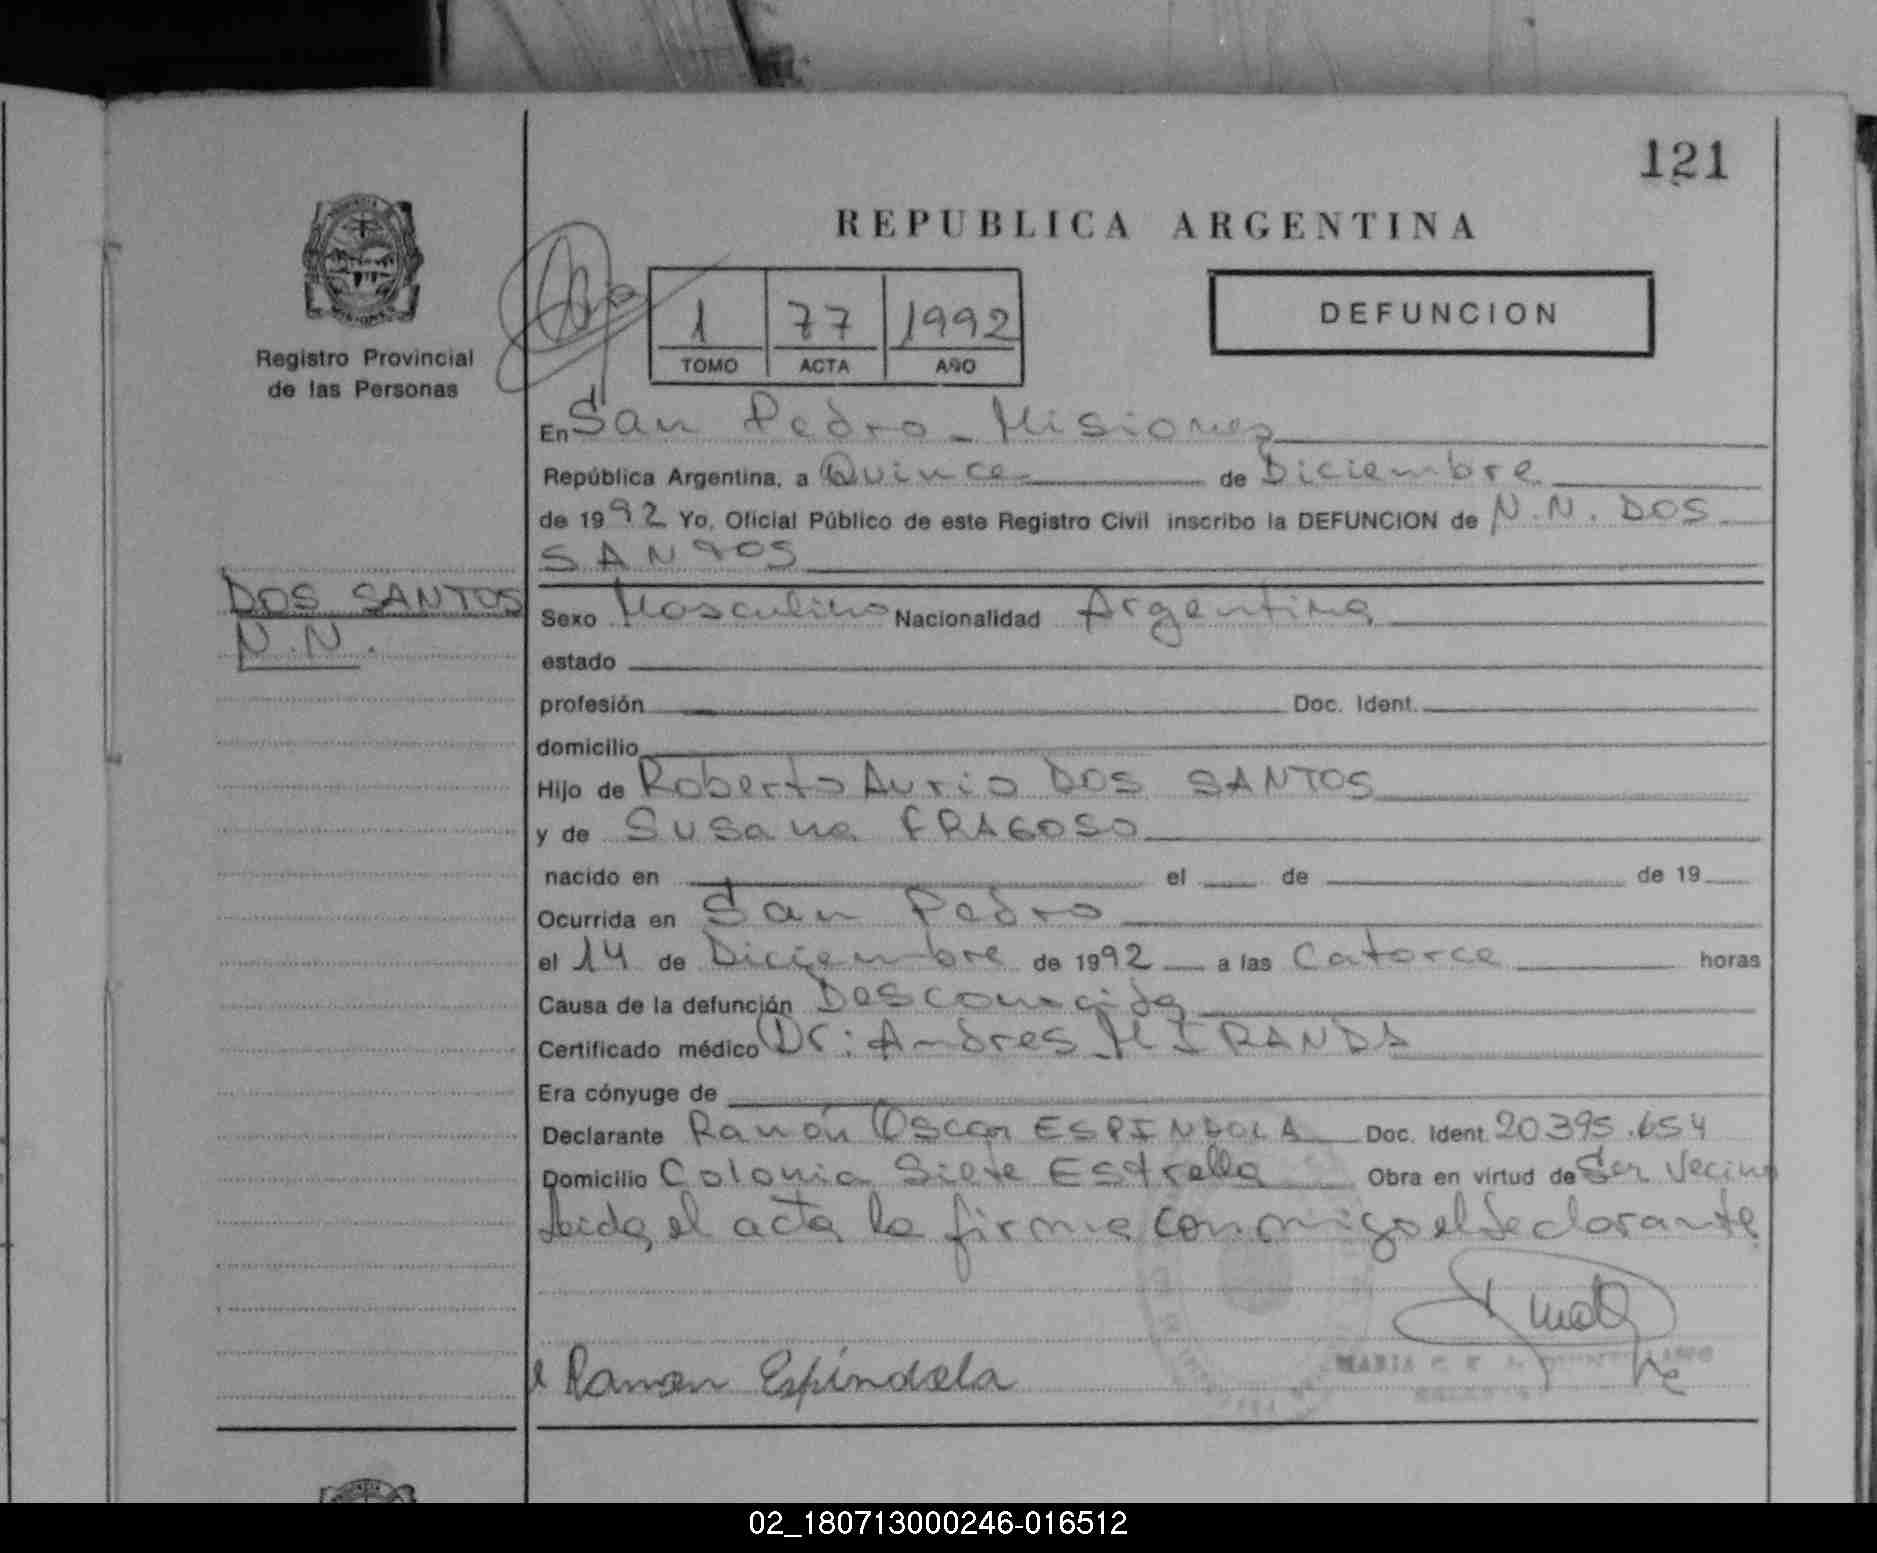 121
REPUBLICA ARGENTINA
Registro Provincial
de las Personas
1 77 1992
TOMO ACTA AÑO
DEFUNCION
En San Pedro - Misiones
República Argentina, a Quince de Diciembre
de 1992 Yo, Oficial Público de este Registro Civil inscribo la DEFUNCION de N.N. DOS
SANTOS
DOS SANTOS
N.N.
Sexo Masculino Nacionalidad Argentina
estado
profesión Doc. Ident.
domicilio
Hijo de Roberto Aurio DOS SANTOS
y de Susana FRAGOSO
nacido en el de de 19
Ocurrida en San Pedro
el 14 de Diciembre de 1992 a las Catorce horas
Causa de la defunción Desconocida
Certificado médico Dr: Andres MIRANDA
Era cónyuge de
Declarante Ramón Oscar ESPINDOLA Doc. Ident. 20395.654
Domicilio Colonia Siete Estrella Obra en virtud de Ser Vecino
Leida el acta la firma conmigo el declarante
Ramon Espindola
MARIA
02_180713000246-016512